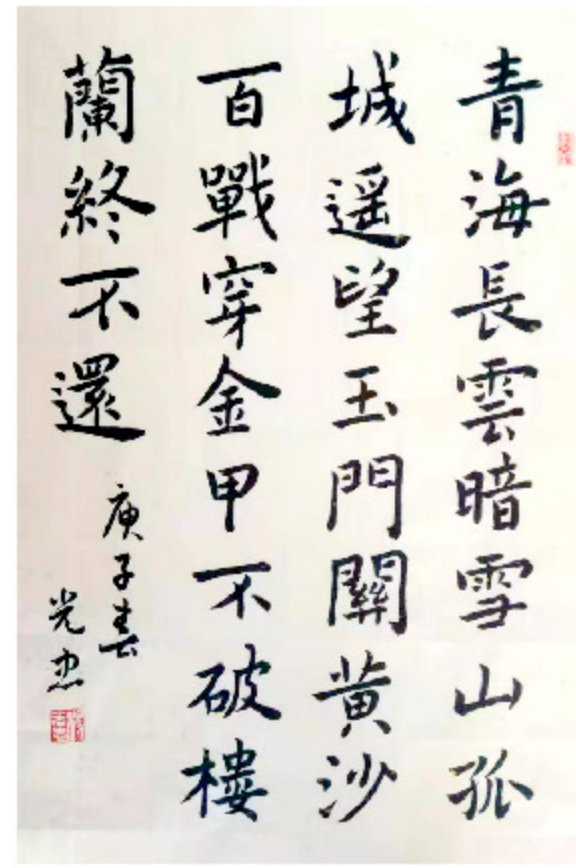 青海長雲暗雪山孤
城遥望玉門關黄沙
百戰穿金甲不破樓
蘭終不還
庚子春
光忠